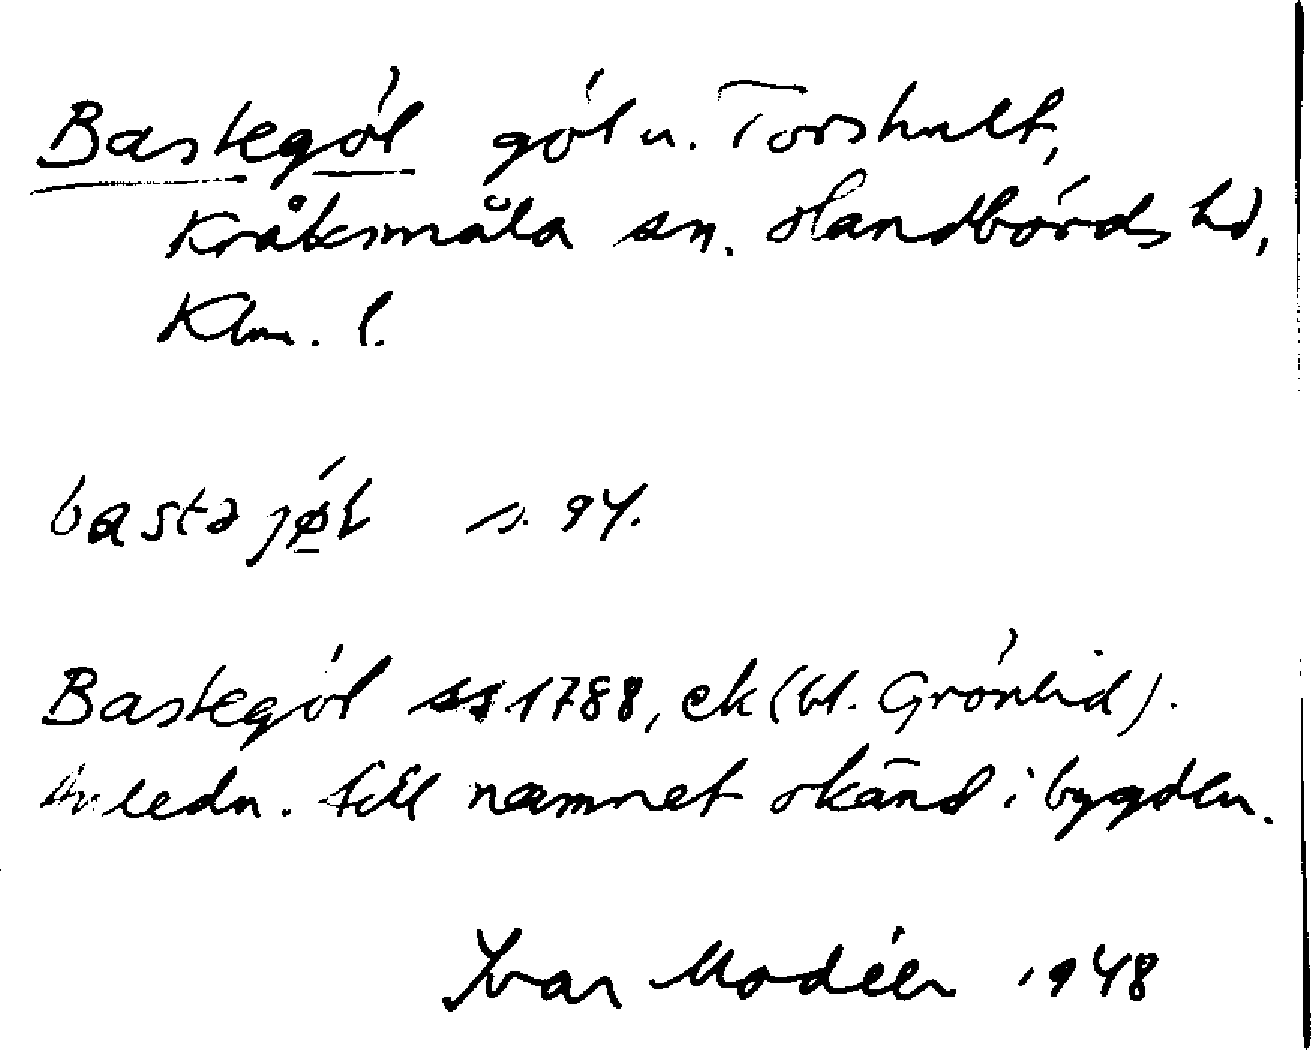 Bastegöl göl u. Torshult,
Kråksmåla sn. Handbörds hd,
Klm. l.
bastəjøl s. 94.
Bastegöl 1788, ek (bl. Grönlid).
Anledn. till namnet okänd i bygden.
Ivar Modéer 1948